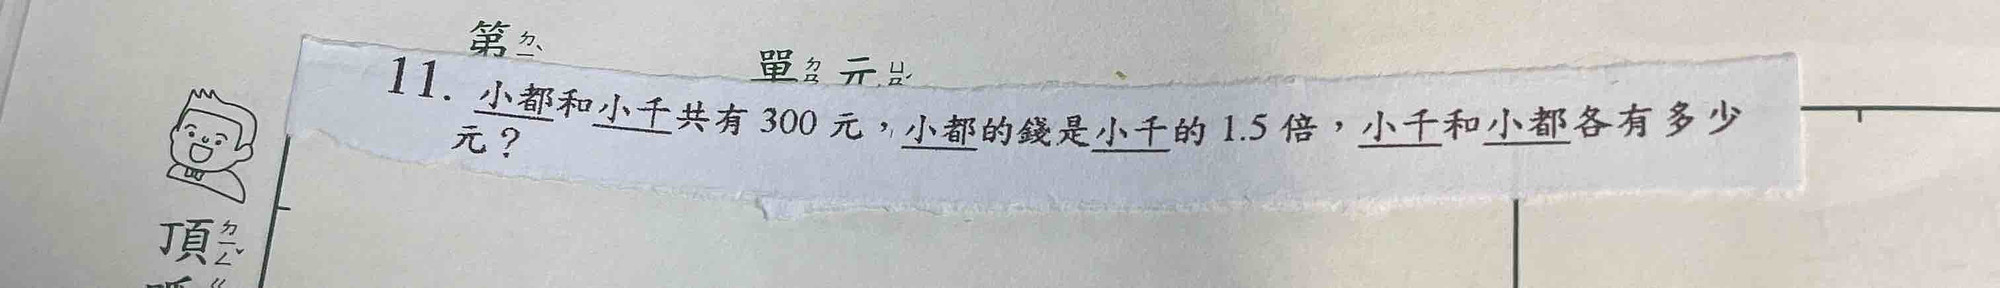 第ㄉㄧˋ
單ㄉㄢ元ㄩㄢˊ
11. 小都和小千共有 300 元，小都的錢是小千的 1.5 倍，小千和小都各有多少
元？
頂ㄉㄧㄥˇ